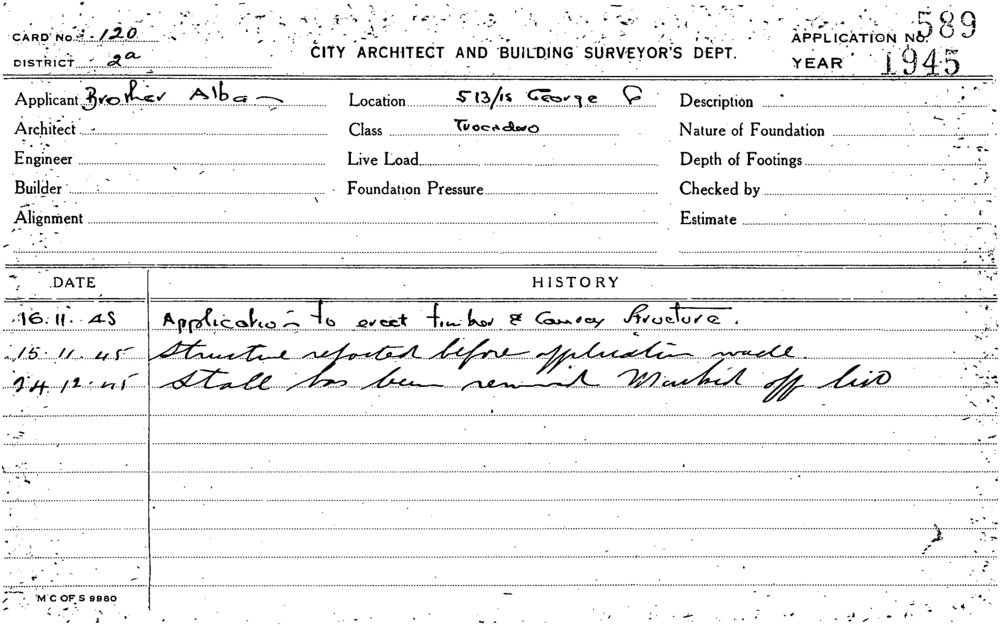 CARD NO. 120
CITY ARCHITECT AND BUILDING SURVEYOR'S DEPT.
APPLICATION NO. 589
DISTRICT 2a
YEAR 1945
Applicant Brother Alban
Location 513/15 George
Description
Architect
Class Trocadero
Nature of Foundation
Engineer
Live Load
Depth of Footings
Builder
Foundation Pressure
Checked by
Alignment
Estimate
DATE HISTORY
16.11.45 Application to erect timber & Canvas Structure.
15.11.45 Structure reported before application made.
24.12.45 Stall has been removed Marked off list
M C OF S 9980